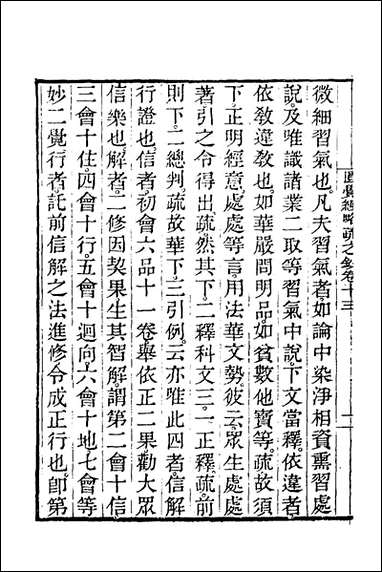 圓覺經略疏之鈔卷十三
微細習氣也。凡夫習氣者如論中染淨相資熏習處
說。及唯識諸業二取等習氣中說。下文當釋。依違者
依敎違敎也。如華嚴問明品如貧數他寶等。疏故須
下。正明經意。處處等言。用法華文勢。彼云。眾生處處
著引之令得出。疏。然其下。二釋科文三。一正釋。疏。前
則下。二總判。疏故華下。三引例。云亦唯此四者。信解
行證也。信者。初會六品十一卷舉依正二果勸大眾
信樂也。解者。二修因契果生其智解。謂第二會十信
三會十住。四會十行。五會十迴向。六會十地。七會等
妙二覺行者。託前信解之法進修令成正行也。卽第